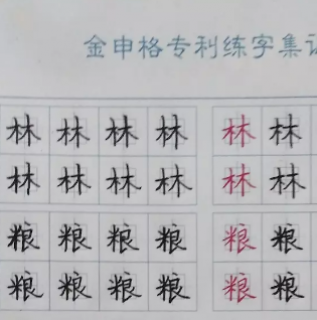 金申格专利练字集
林林林林林林
林林林林林林
粮粮粮粮粮粮
粮粮粮粮粮粮